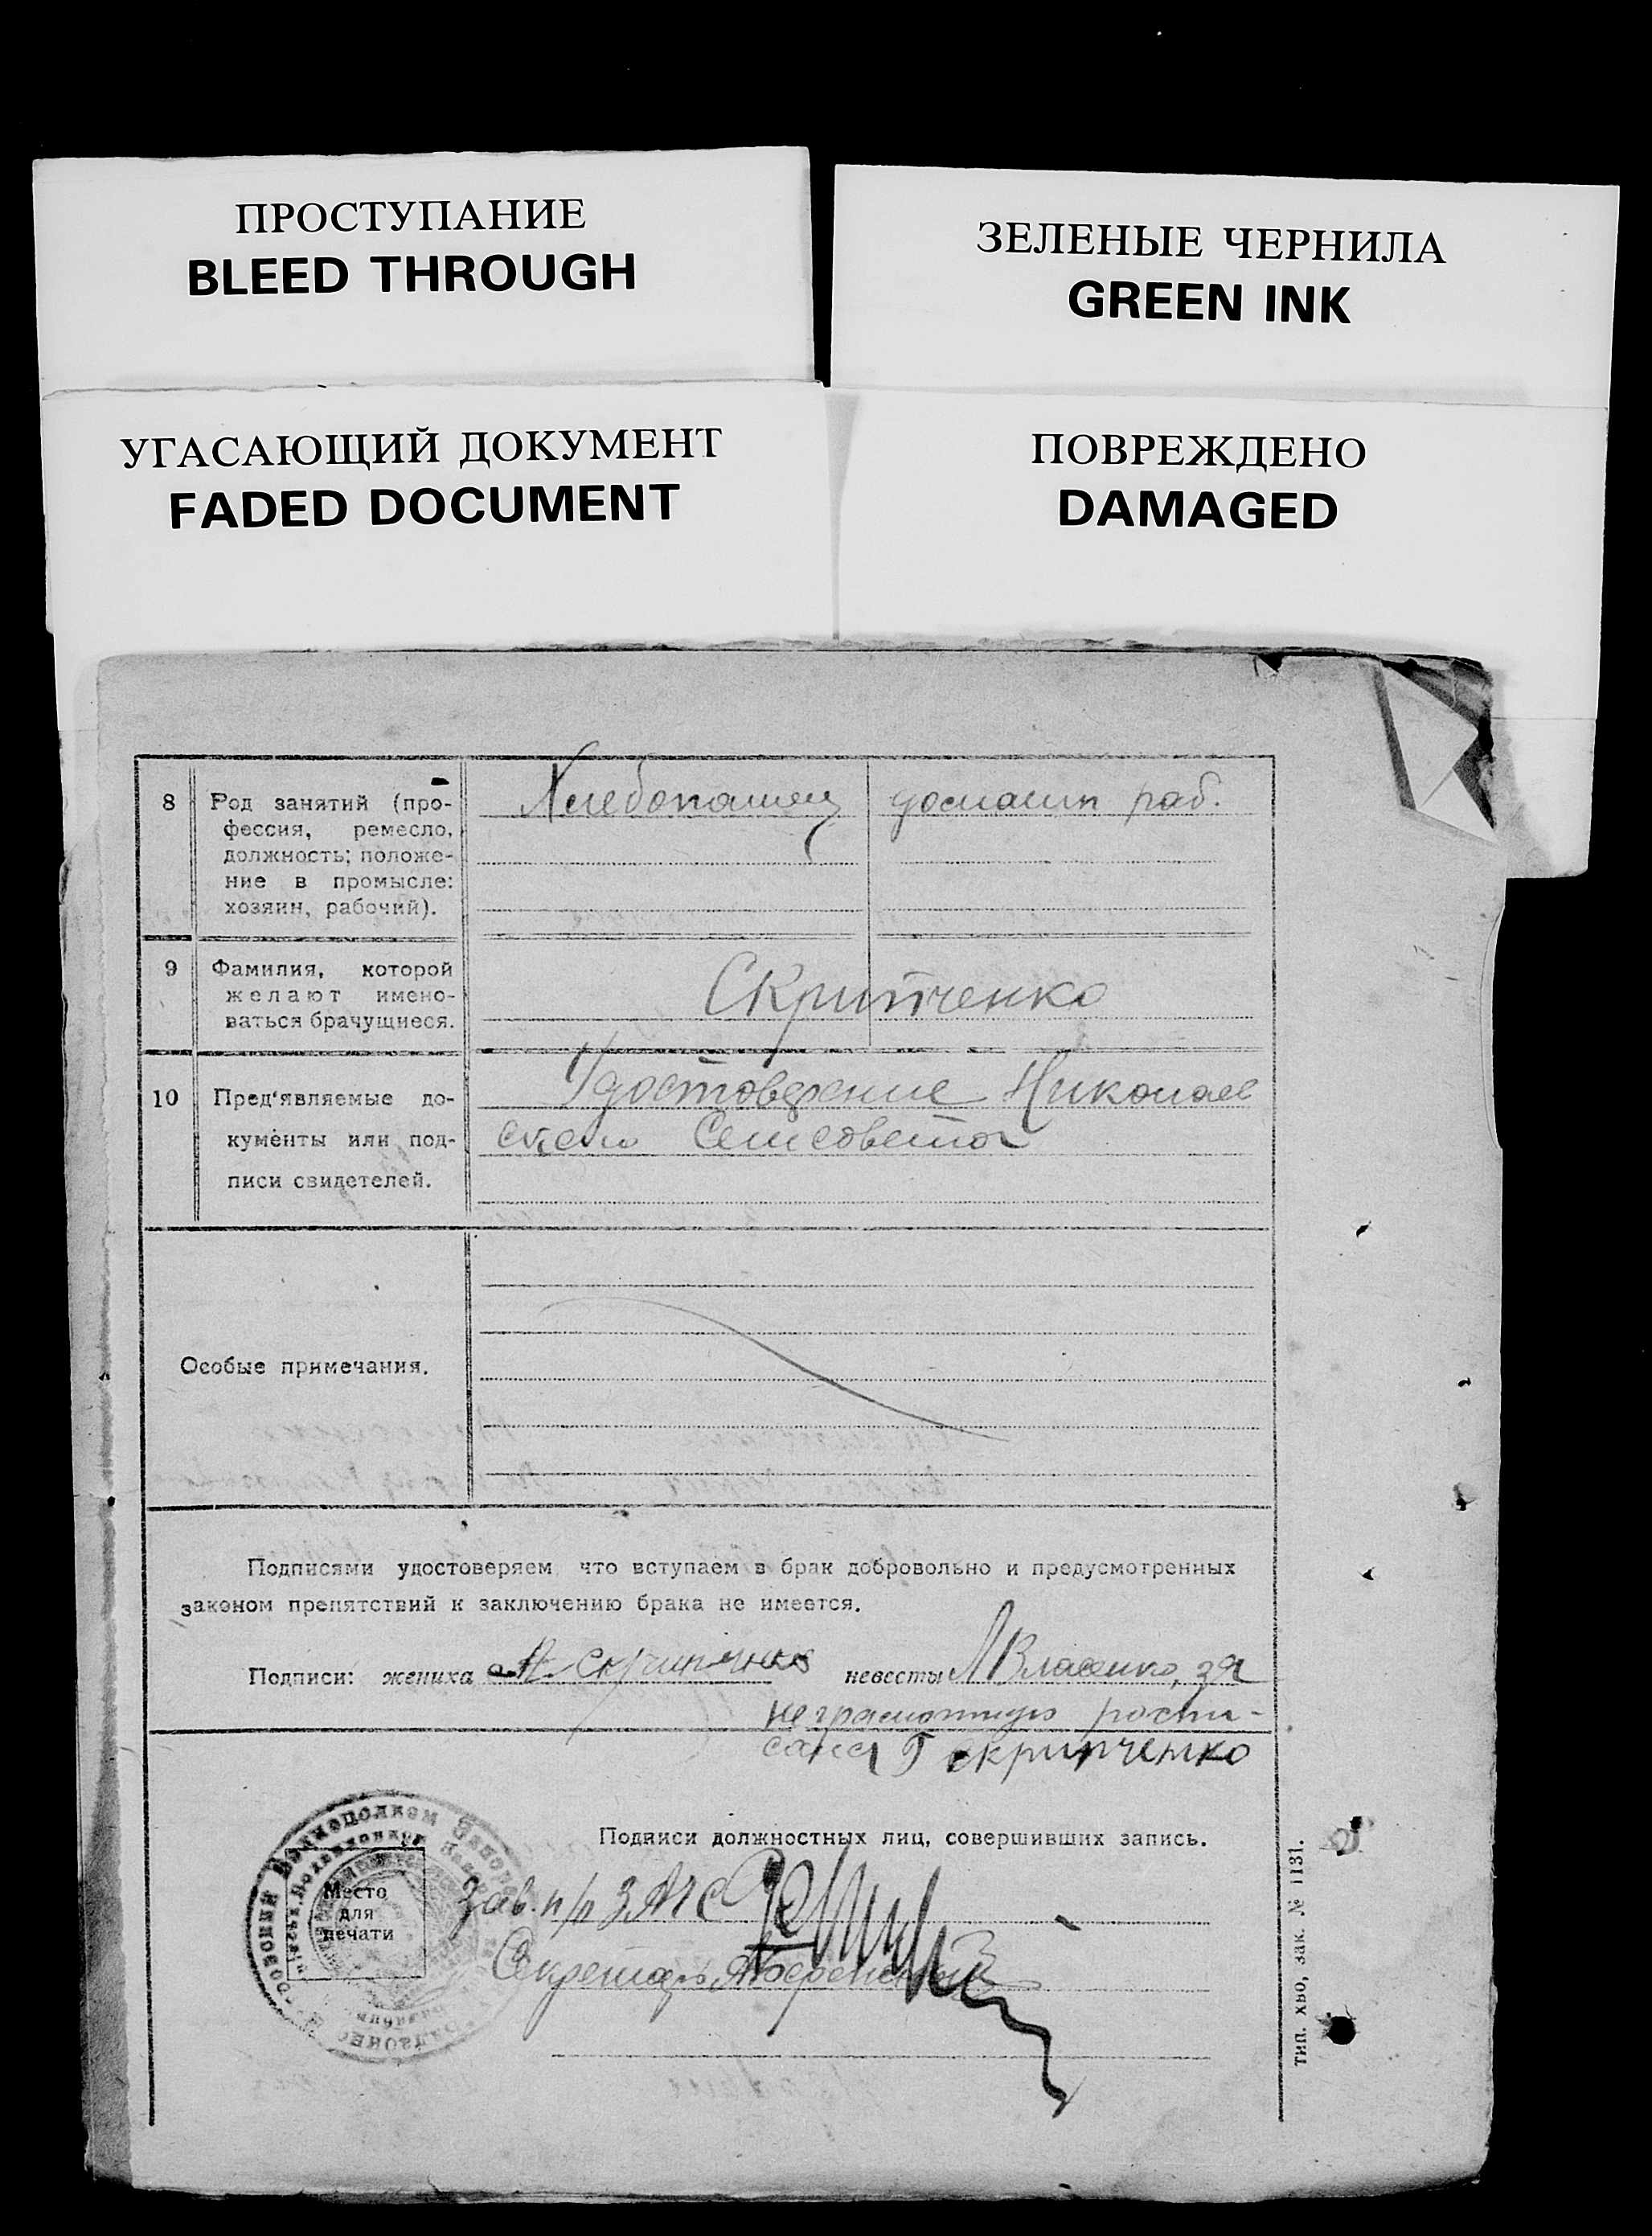 ПРОСТУПАНИЕ
BLEED THROUGH
ЗЕЛЕНЫЕ ЧЕРНИЛА
GREEN INK
УГАСАЮЩИЙ ДОКУМЕНТ
FADED DOCUMENT
ПОВРЕЖДЕНО
DAMAGED
8 Род занятий (про-
фессия, ремесло,
должность; положе-
ние в промысле:
хозяин, рабочий).
Хлебопашец
домашн раб.
9 Фамилия, которой
желают имено-
ваться брачущиеся.
Скрипченко
10 Пред'являемые до-
кументы или под-
писи свидетелей.
Удостоверение Николаев
ского Сельсовета
Особые примечания.
Подписями удостоверяем что вступаем в брак добровольно и предусмотренных
законом препятствий к заключению брака не имеется.
Подписи: жениха Скрипченко невесты Власенко, за
неграмотную распи-
салса Г Скрипченко
Подписи должностных лиц, совершивших запись.
Место
для
печати
Зав. п/п ЗАГС
Секретарь
тип. хво, зак. № 1131.